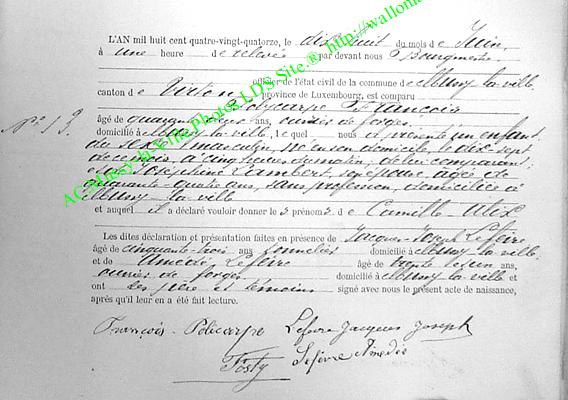 L'AN mil huit cent quatre-vingt-quatorze, le dix huit du mois de Juin,
à une heure de relevée par devant nous Bourgmestre
officier de l'état civil de la commune de Mussy-la-ville,
canton de Virton, province de Luxembourg, est comparu
Polycarpe François
N° 19.
âgé de quarante ans, ouvrier de forges,
domicilié à Mussy-la-ville, lequel nous a présenté un enfant
du sexe masculin, né en son domicile, le dix sept
à cinq heures du matin, de lui comparant
et de Joséphine Lambert, son épouse, âgée de
quarante-quatre ans, sans profession, domiciliée à
Mussy-la-ville
et auquel il a déclaré vouloir donner les prénoms de Camille-
Les dites déclaration et présentation faites en présence de Jacques-Joseph Lefèvre
âgé de cinquante-trois ans, domicilié à Mussy-la-ville
et de Amédé Lefèvre âgé de trente ans,
ouvrier de forges domicilié à Mussy-la-ville et
ont les père et témoins signé avec nous le présent acte de naissance,
après qu'il leur en a été fait lecture.
François-Policarpe Lefèvre Jacques Joseph
Posty Lefèvre Amédé
AC Mussy-la-Ville Photos LDS Site © http://wallonie